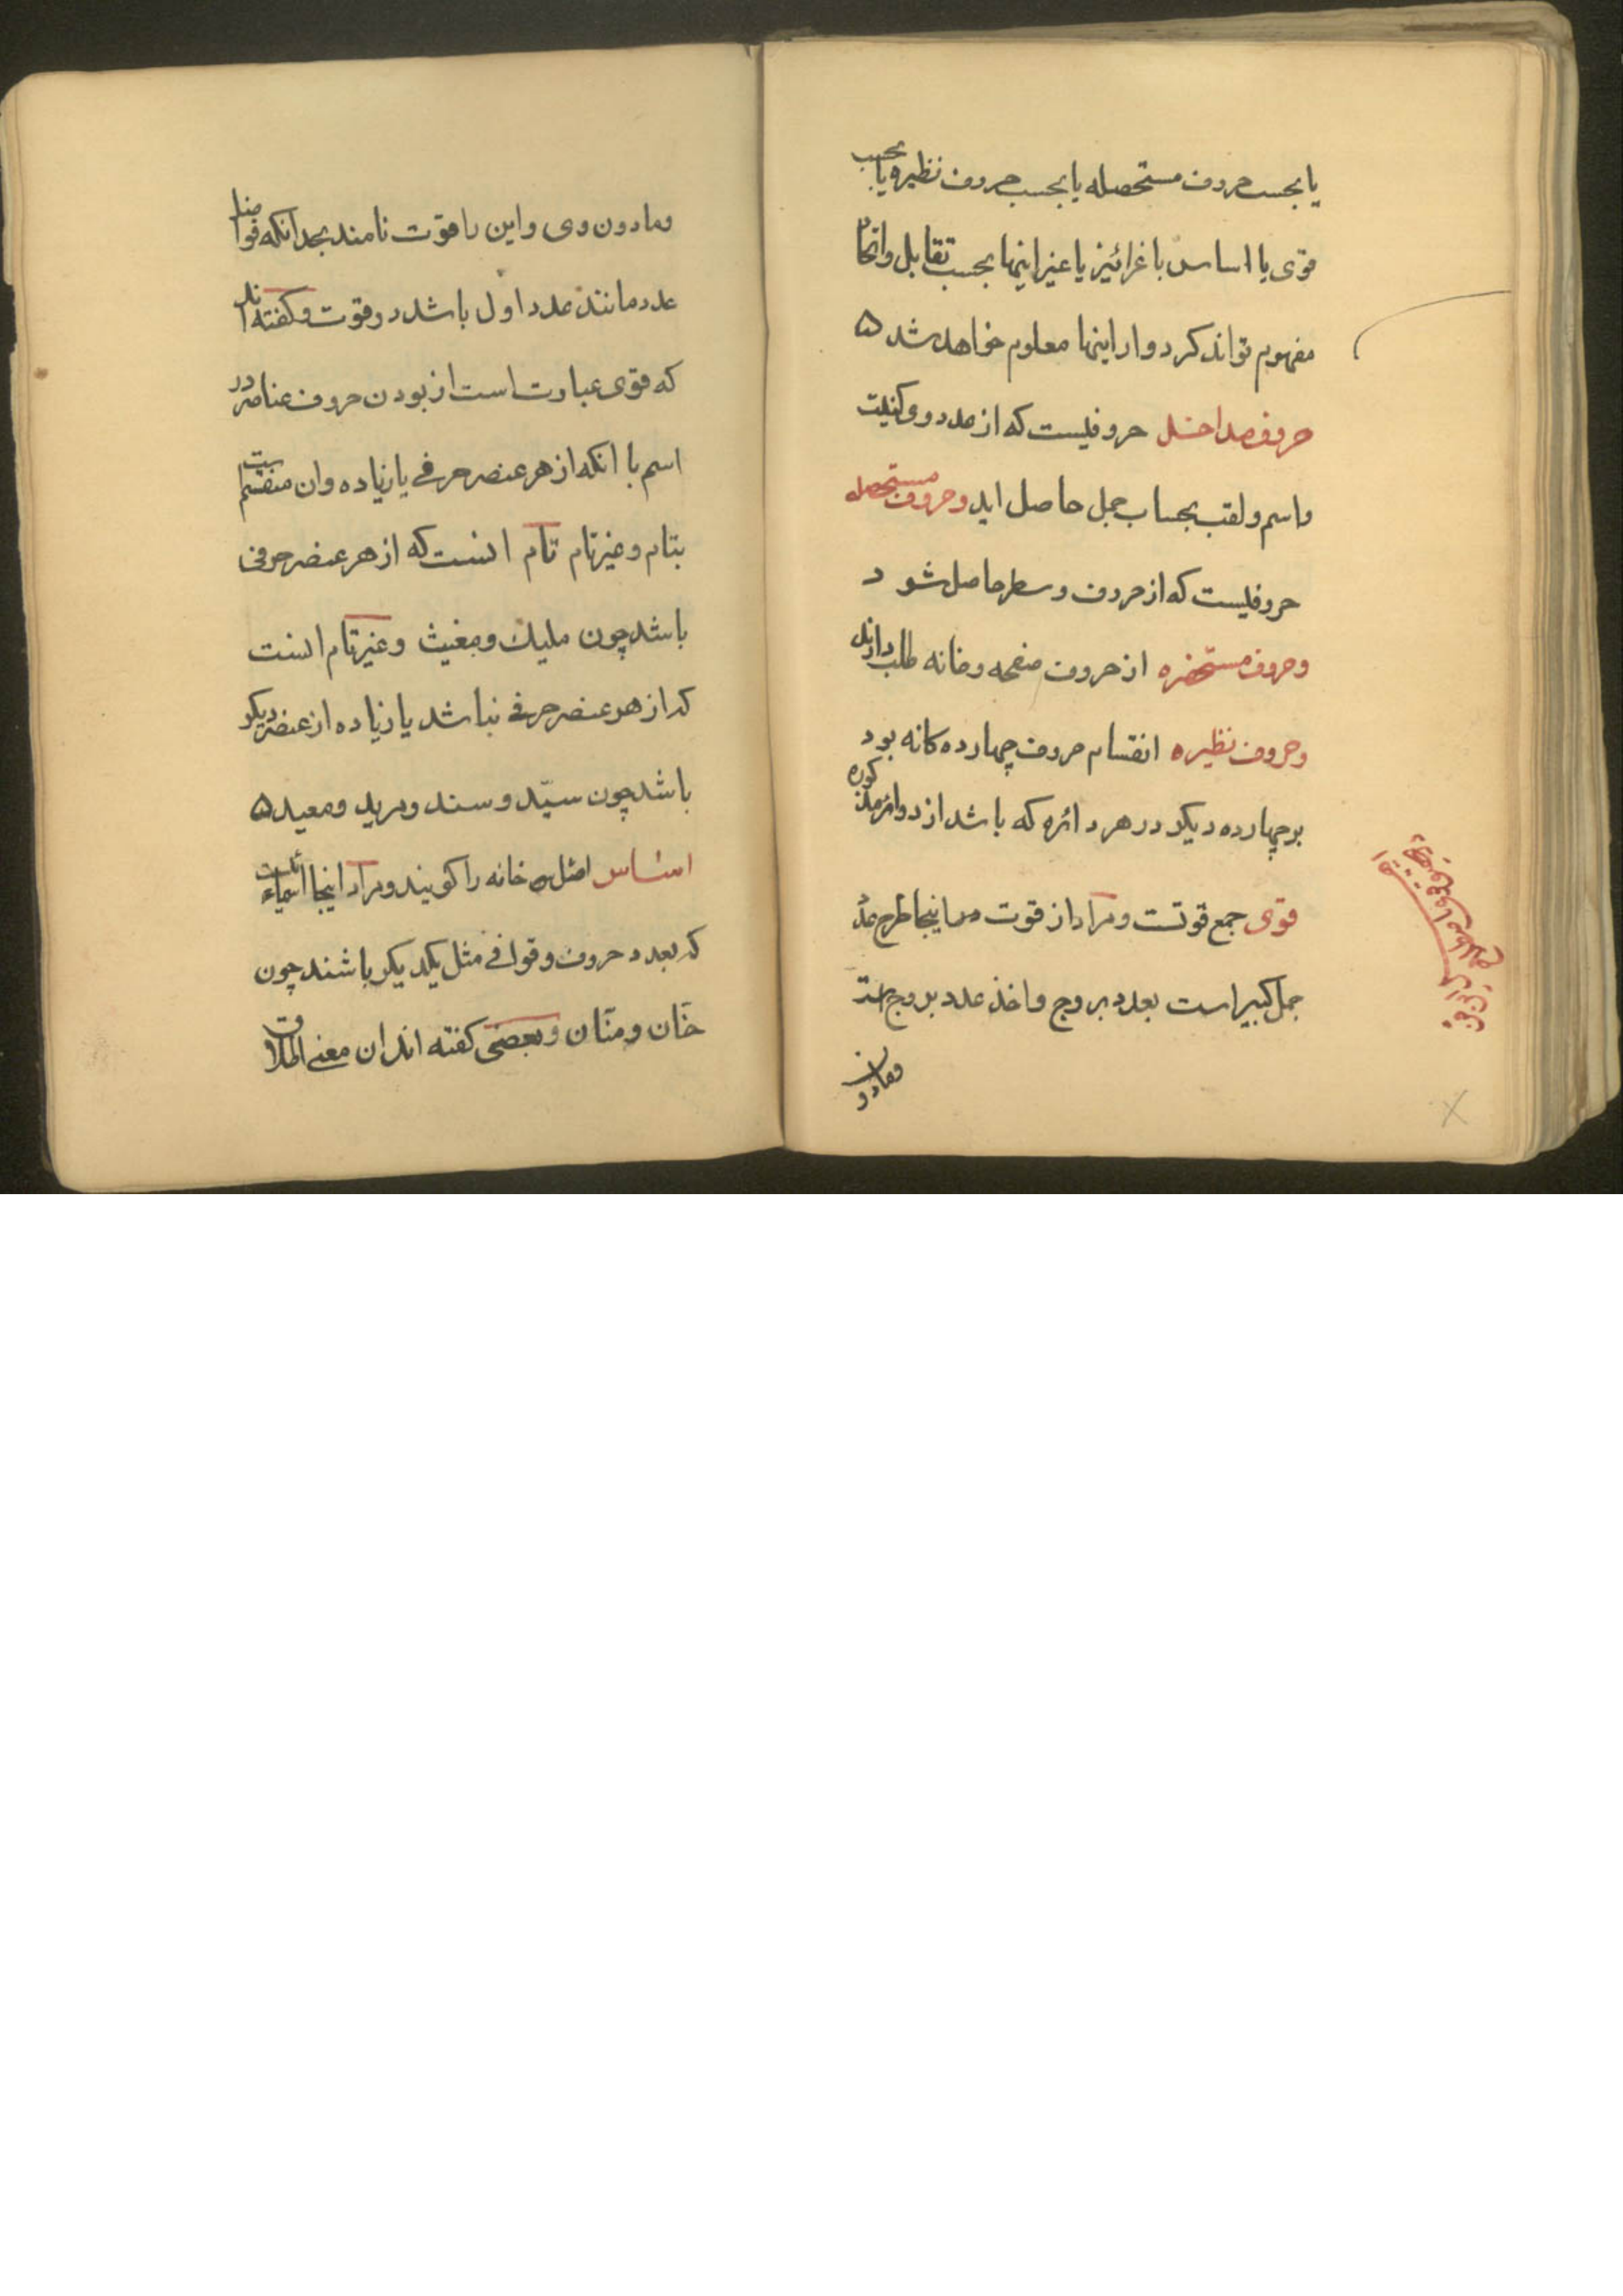 یا بحسب حروف مستحصله یا بحسب حروف نظیره یا بحسب
قوی یا اساس یا غرائیز یا غیر اینها بحسب تقابل و اتحاد
مفهوم تواند کرد و از اینها معلوم خواهد شد ۵
حروف مداخل حروفیست که از عدد و کنیت
و اسم و لقب بحساب جمل حاصل اید و حروف مستحصله
حروفیست که از حروف و سطر حاصل شود
و حروف مستحضره از حروف صفحه و خانه طلب دارند
و حروف نظیره انقسام حروف چهارده کانه بود
بر چهارده دیکر در هر دائره که باشد از دوائر مذکوره
قوی جمع قوتست و مراد از قوت در اینجا طرح عدد
جمل کبیر است بعدد بروج و اخذ عدد بروج است
و مادون
و مادون وی و این را قوت نامند بجد انکه فواضل
عدد مانند عدد اول باشد در قوت و کفته اند
که قوی عبارت است از بودن حروف عناصر در
اسم با انکه از هر عنصر حرفی یا زیاده و ان منقسم است
بتام و غیر تام تام انست که از هر عنصر حرفی
باشد چون ملیک و مغیث و غیر تام انست
که از هر عنصر حرفی نباشد یا زیاده از عنصر دیکر
باشد چون سیّد و سند و مرید و معید ۵
اساس اصل خانه را کویند و مراد اینجا اسماء است
که بعدد حروف و قوافی مثل یکدیکر باشند چون
حنّان و منّان و بعضی کفته اند ان معنی اطلاق